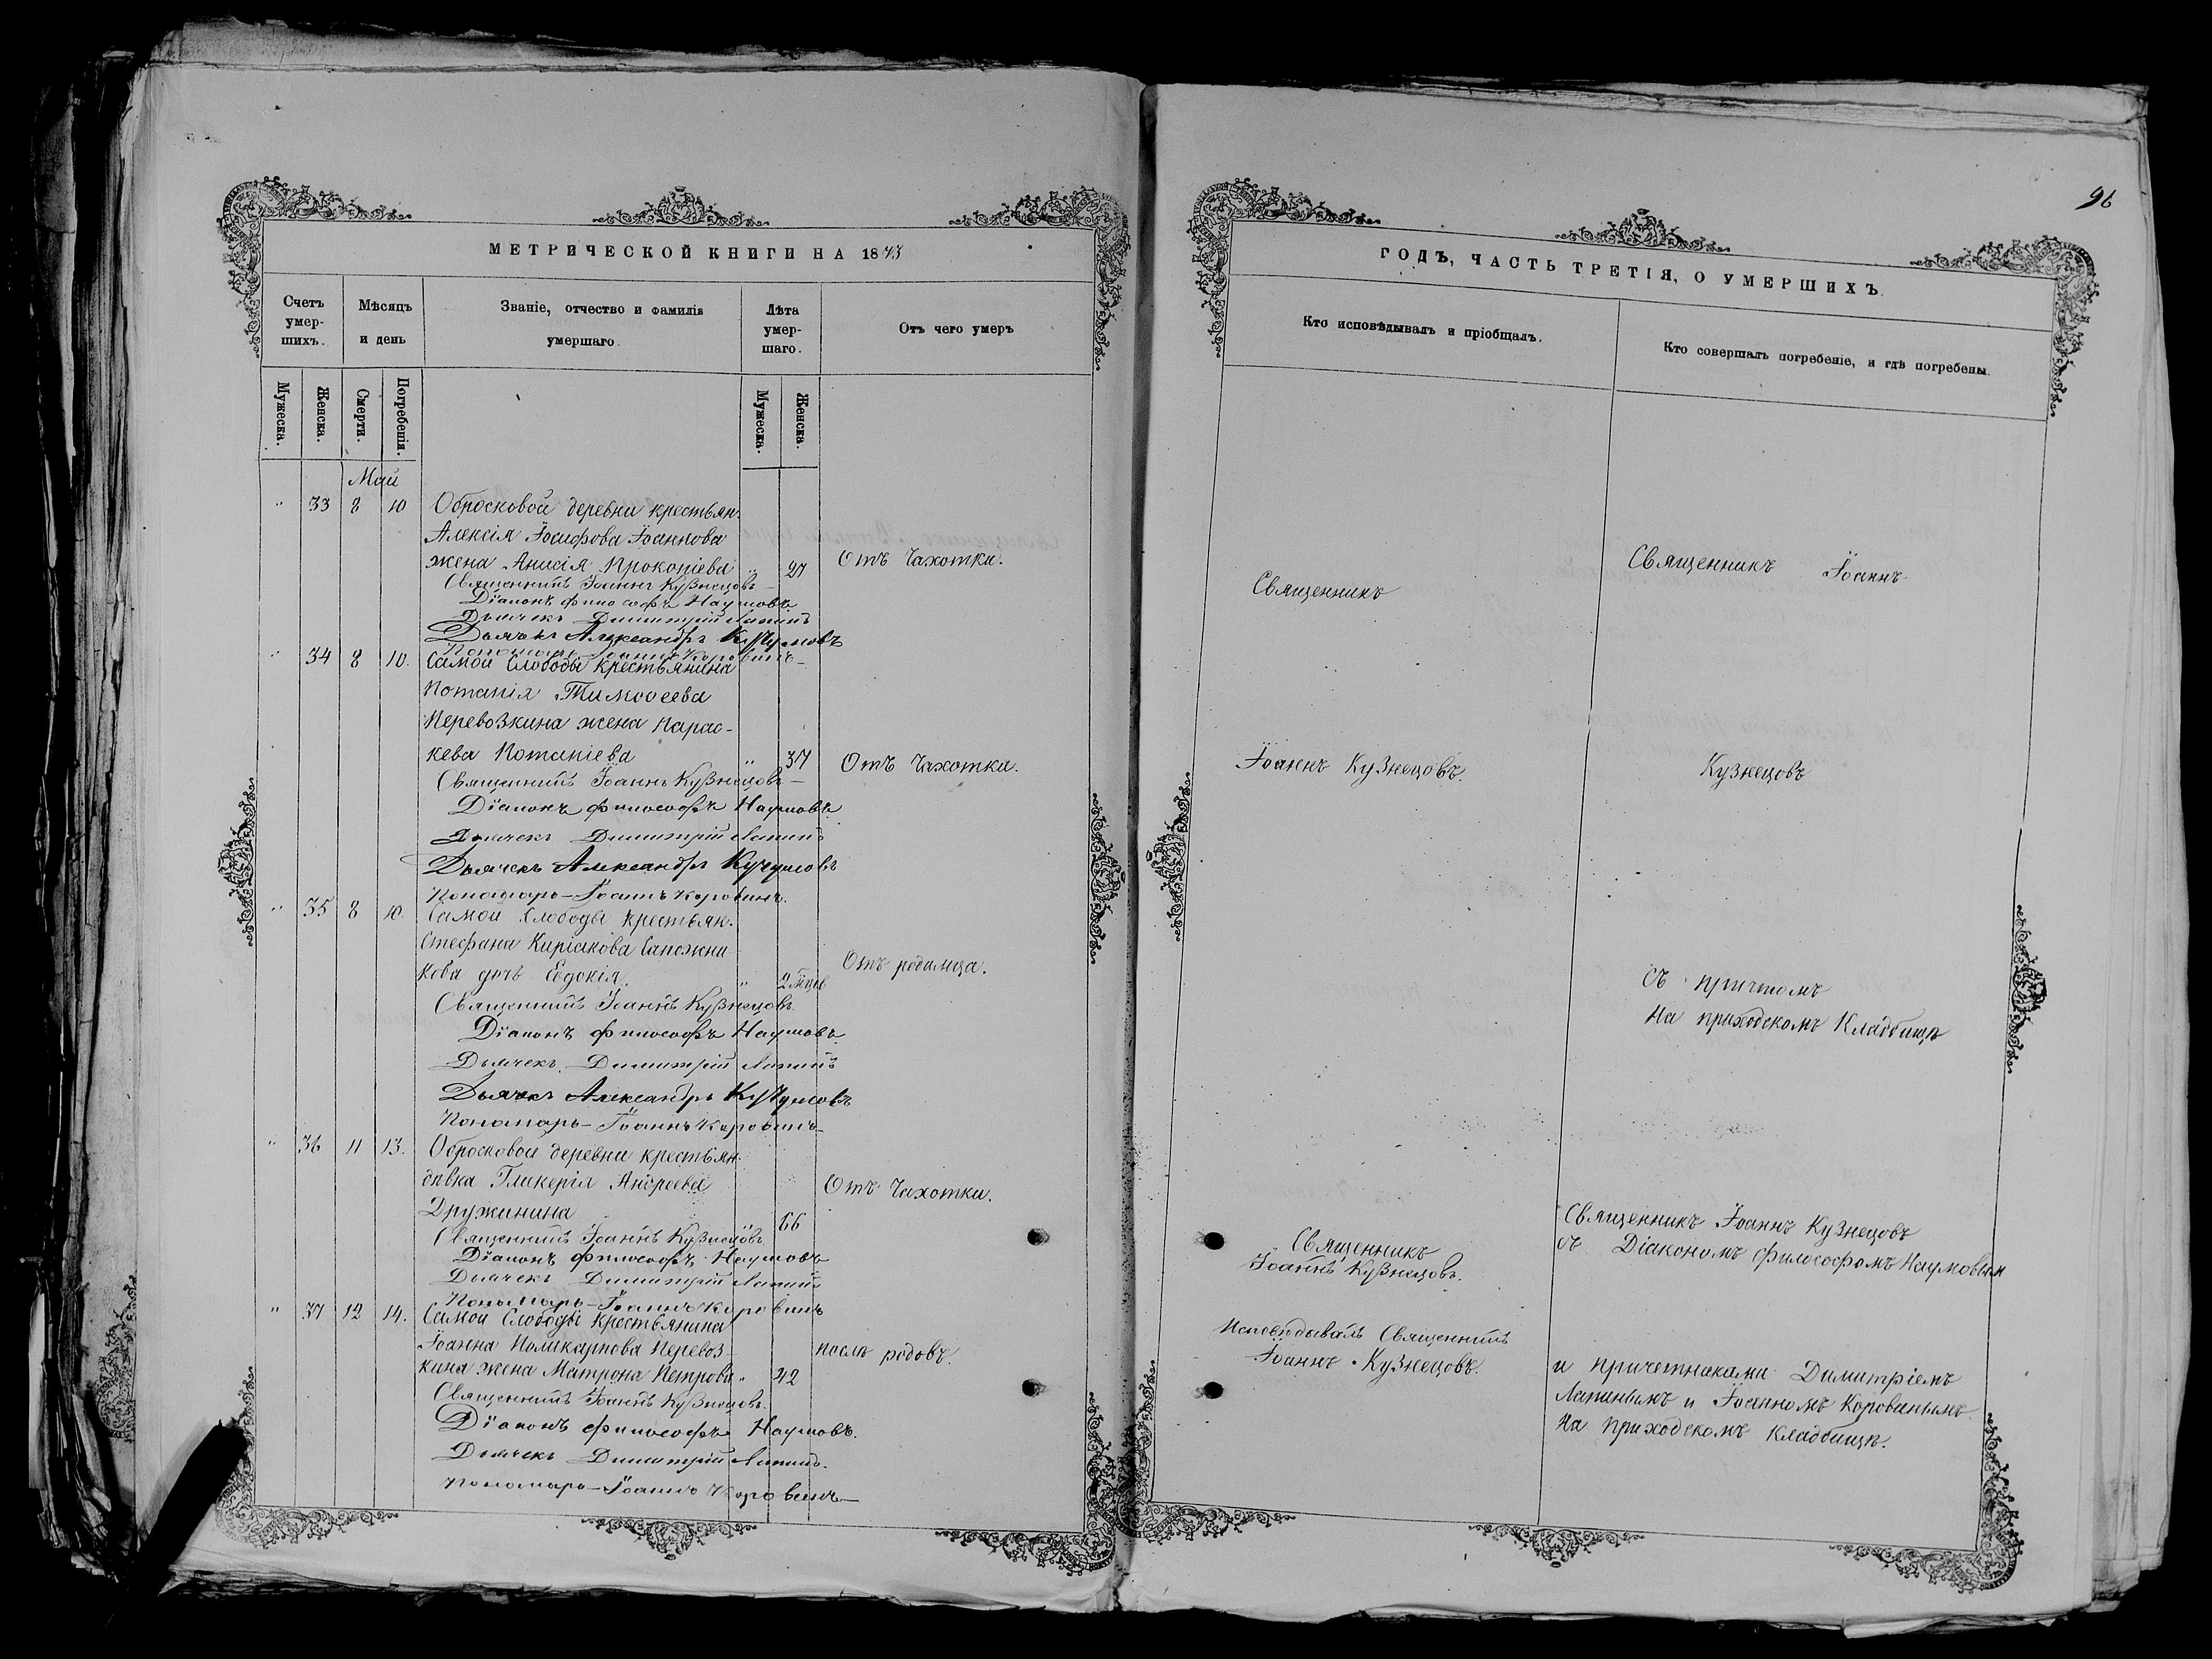 96
МЕТРИЧЕСКОЙ КНИГИ НА 1873
Счетъ умер-шихъ.
Мѣсяцъ и день
Званіе, отчество и фамилія умершаго.
Лѣта умер-шаго.
Отъ чего умеръ
Мужеска.
Женска.
Смерти.
Погребенія.
Мужеска.
Женска.
Май
" 33 8 10 Обросковой деревни крестьян.
Алексія Іосифова Іоаннова
жена Анисія Прокопіева " 27 Отъ Чахотки.
Священникъ Іоаннъ Кузнецовъ
Діаконъ Философъ Наумовъ
Дьячекъ Димитрій Лапинъ
Дьячекъ Александръ Кучумовъ
Пономарь Іоаннъ Коровинъ
" 34 8 10. Самой Слободы Крестьянина
Потапія Тимоѳеева
Перевозкина жена Парас-
кева Потапіева " 37 Отъ Чахотки.
Священникъ Іоаннъ Кузнецовъ
Діаконъ Философъ Наумовъ
Дьячекъ Димитрій Лапинъ
Дьячекъ Александръ Кучумовъ
Пономарь Іоаннъ Коровинъ.
" 35 8 10. Самой Слободы Крестьян.
Стефана Киріакова Сапожни-
кова дочь Евдокія. " 2 Отъ родимца.
Священникъ Іоаннъ Кузнецовъ
Діаконъ Философъ Наумовъ
Дьячекъ Димитрій Лапинъ
Дьячекъ Александръ Кучумовъ
Пономарь Іоаннъ Коровинъ
" 36 11 13. Обросковой деревни крестьян.
дѣвка Гликерія Андреева Отъ Чахотки.
Дружинина " 66
Священникъ Іоаннъ Кузнецовъ
Діаконъ Философъ Наумовъ
Дьячекъ Димитрій Лапинъ
Пономарь Іоаннъ Коровинъ
" 37 12 14. Самой Слободы Крестьянина
Іоанна Поликарпова Перевоз- послѣ родовъ.
кина жена Матрона Петрова " 42
Священникъ Іоаннъ Кузнецовъ
Діаконъ Философъ Наумовъ.
Дьячекъ Димитрій Лапинъ.
Пономарь Іоаннъ Коровинъ
ГОДЪ, ЧАСТЬ ТРЕТІЯ, О УМЕРШИХЪ.
Кто исповѣдывалъ и пріобщалъ.
Кто совершалъ погребеніе, и гдѣ погребены.
Священникъ
Іоаннъ Кузнецовъ.
Священникъ
Іоаннъ Кузнецовъ.
Исповѣдывалъ Священникъ
Іоаннъ Кузнецовъ.
Священникъ Іоаннъ
Кузнецовъ
съ причтомъ
На приходскомъ Кладбищѣ
Священникъ Іоаннъ Кузнецовъ
съ Діакономъ Философомъ Наумовым
и причетниками Димитріемъ
Лапинымъ и Іоанномъ Коровинымъ
На приходскомъ Кладбищѣ.